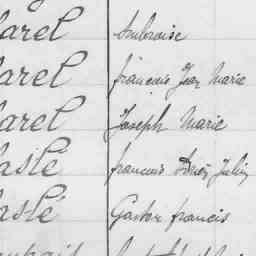 arel Ambroise
arel francois Jean Marie
arel Joseph Marie
aslé francois Julien
aslé Gaston francis